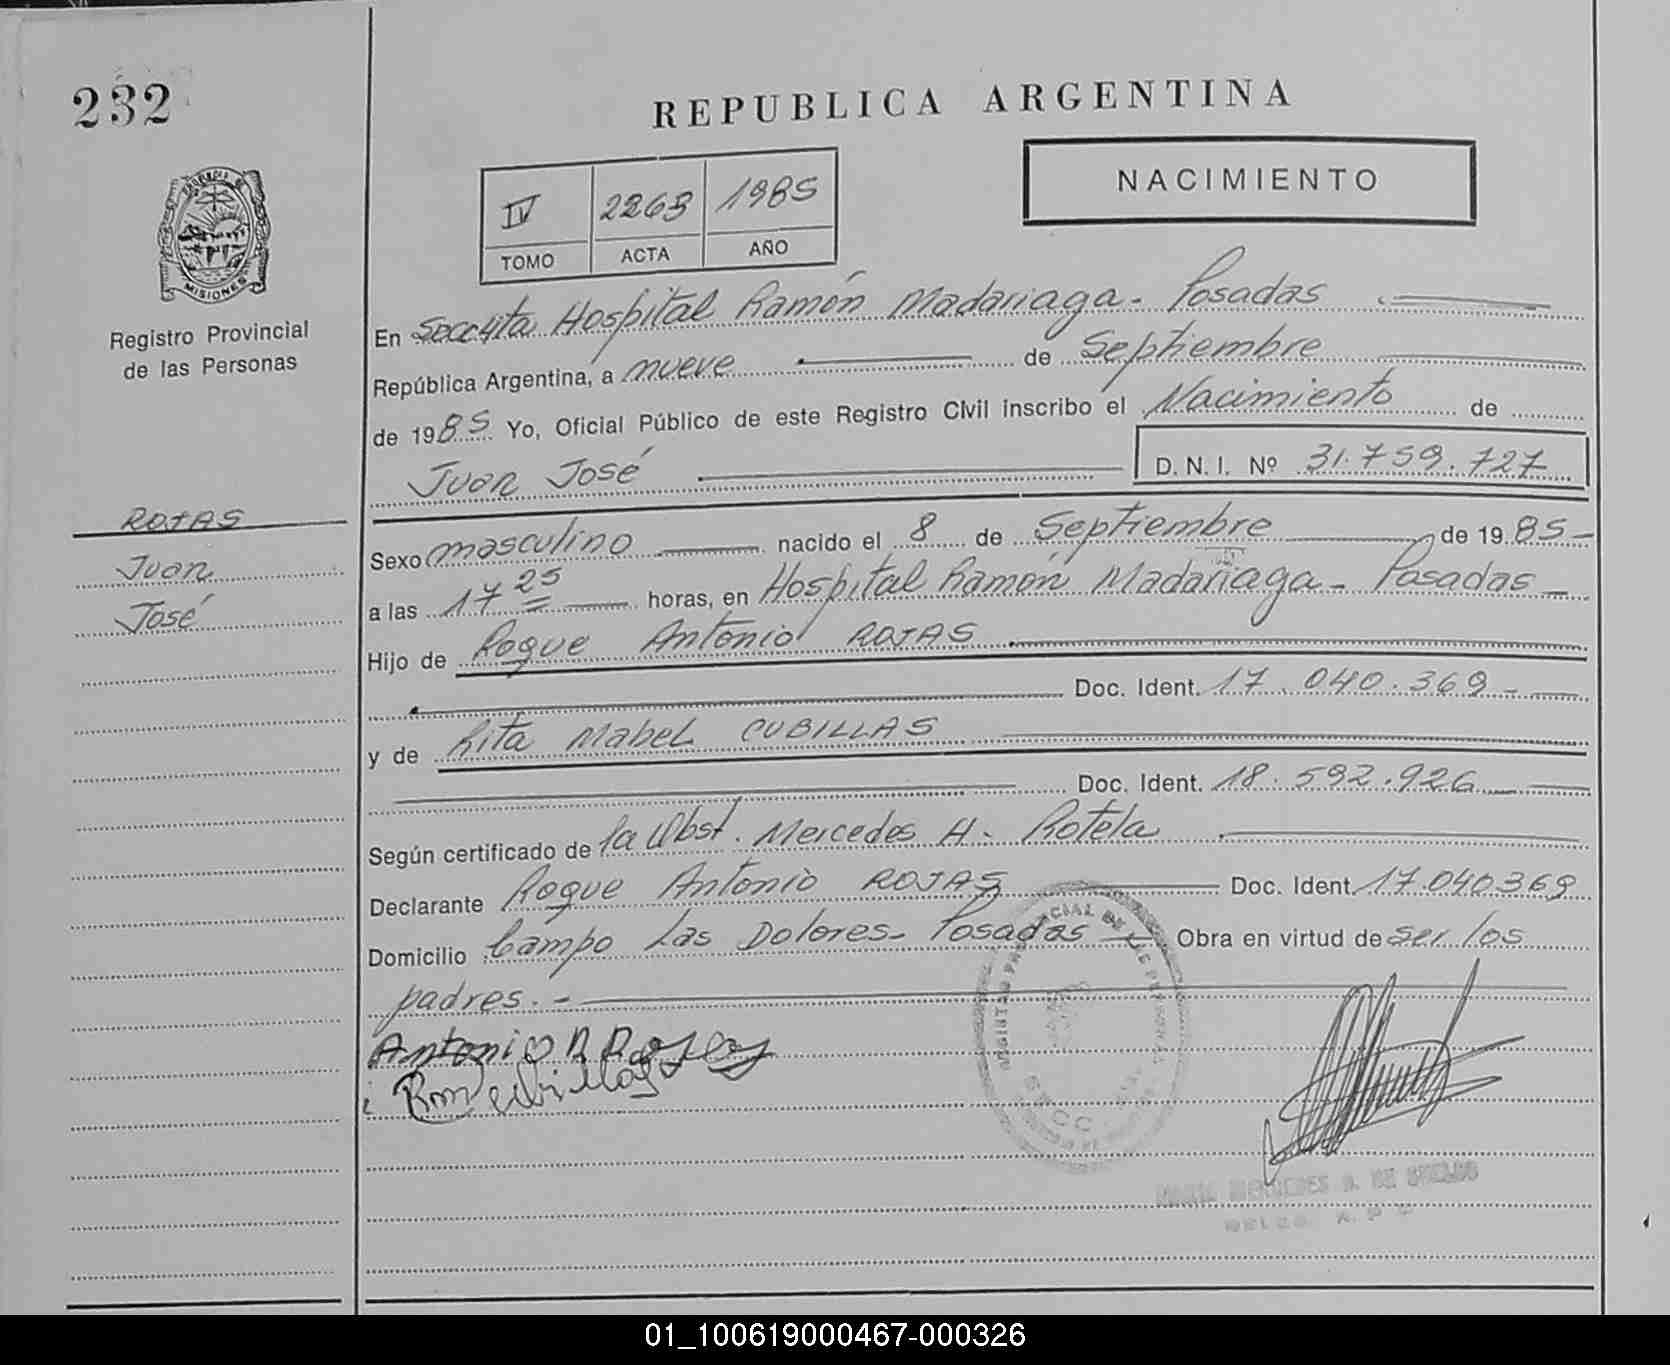 232
REPUBLICA ARGENTINA
NACIMIENTO
IV 2263 1985
TOMO ACTA AÑO
PROVINCIA DE
MISIONES
Registro Provincial
de las Personas
ROJAS
Juan
José
En Secc 4ta Hospital Ramón Madariaga - Posadas
República Argentina, a nueve de Septiembre
de 1985 Yo, Oficial Público de este Registro Civil inscribo el Nacimiento de
Juan José D. N. I. Nº 31.759.727
Sexo masculino nacido el 8 de Septiembre de 1985
a las 17 25 horas, en Hospital Ramón Madariaga - Posadas
Hijo de Roque Antonio ROJAS
Doc. Ident. 17.040.369
y de Rita Mabel CUBILLAS
Doc. Ident. 18.592.926
Según certificado de la Obst. Mercedes H. Rotela
Declarante Roque Antonio ROJAS Doc. Ident. 17.040369
Domicilio Campo Las Dolores - Posadas Obra en virtud de ser los
padres. -
Antonio R Rojas
01_100619000467-000326